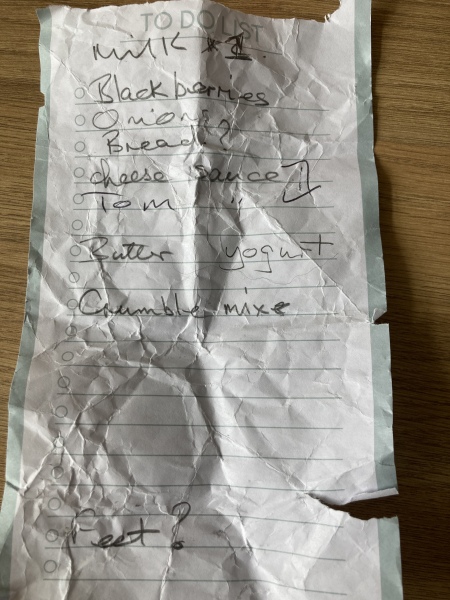 TO DO LIST
Milk * 1
Blackberries
Onions
Bread?
cheese sauce 1
Tom " 
Butter yogurt
Crumble mixe
Feet?